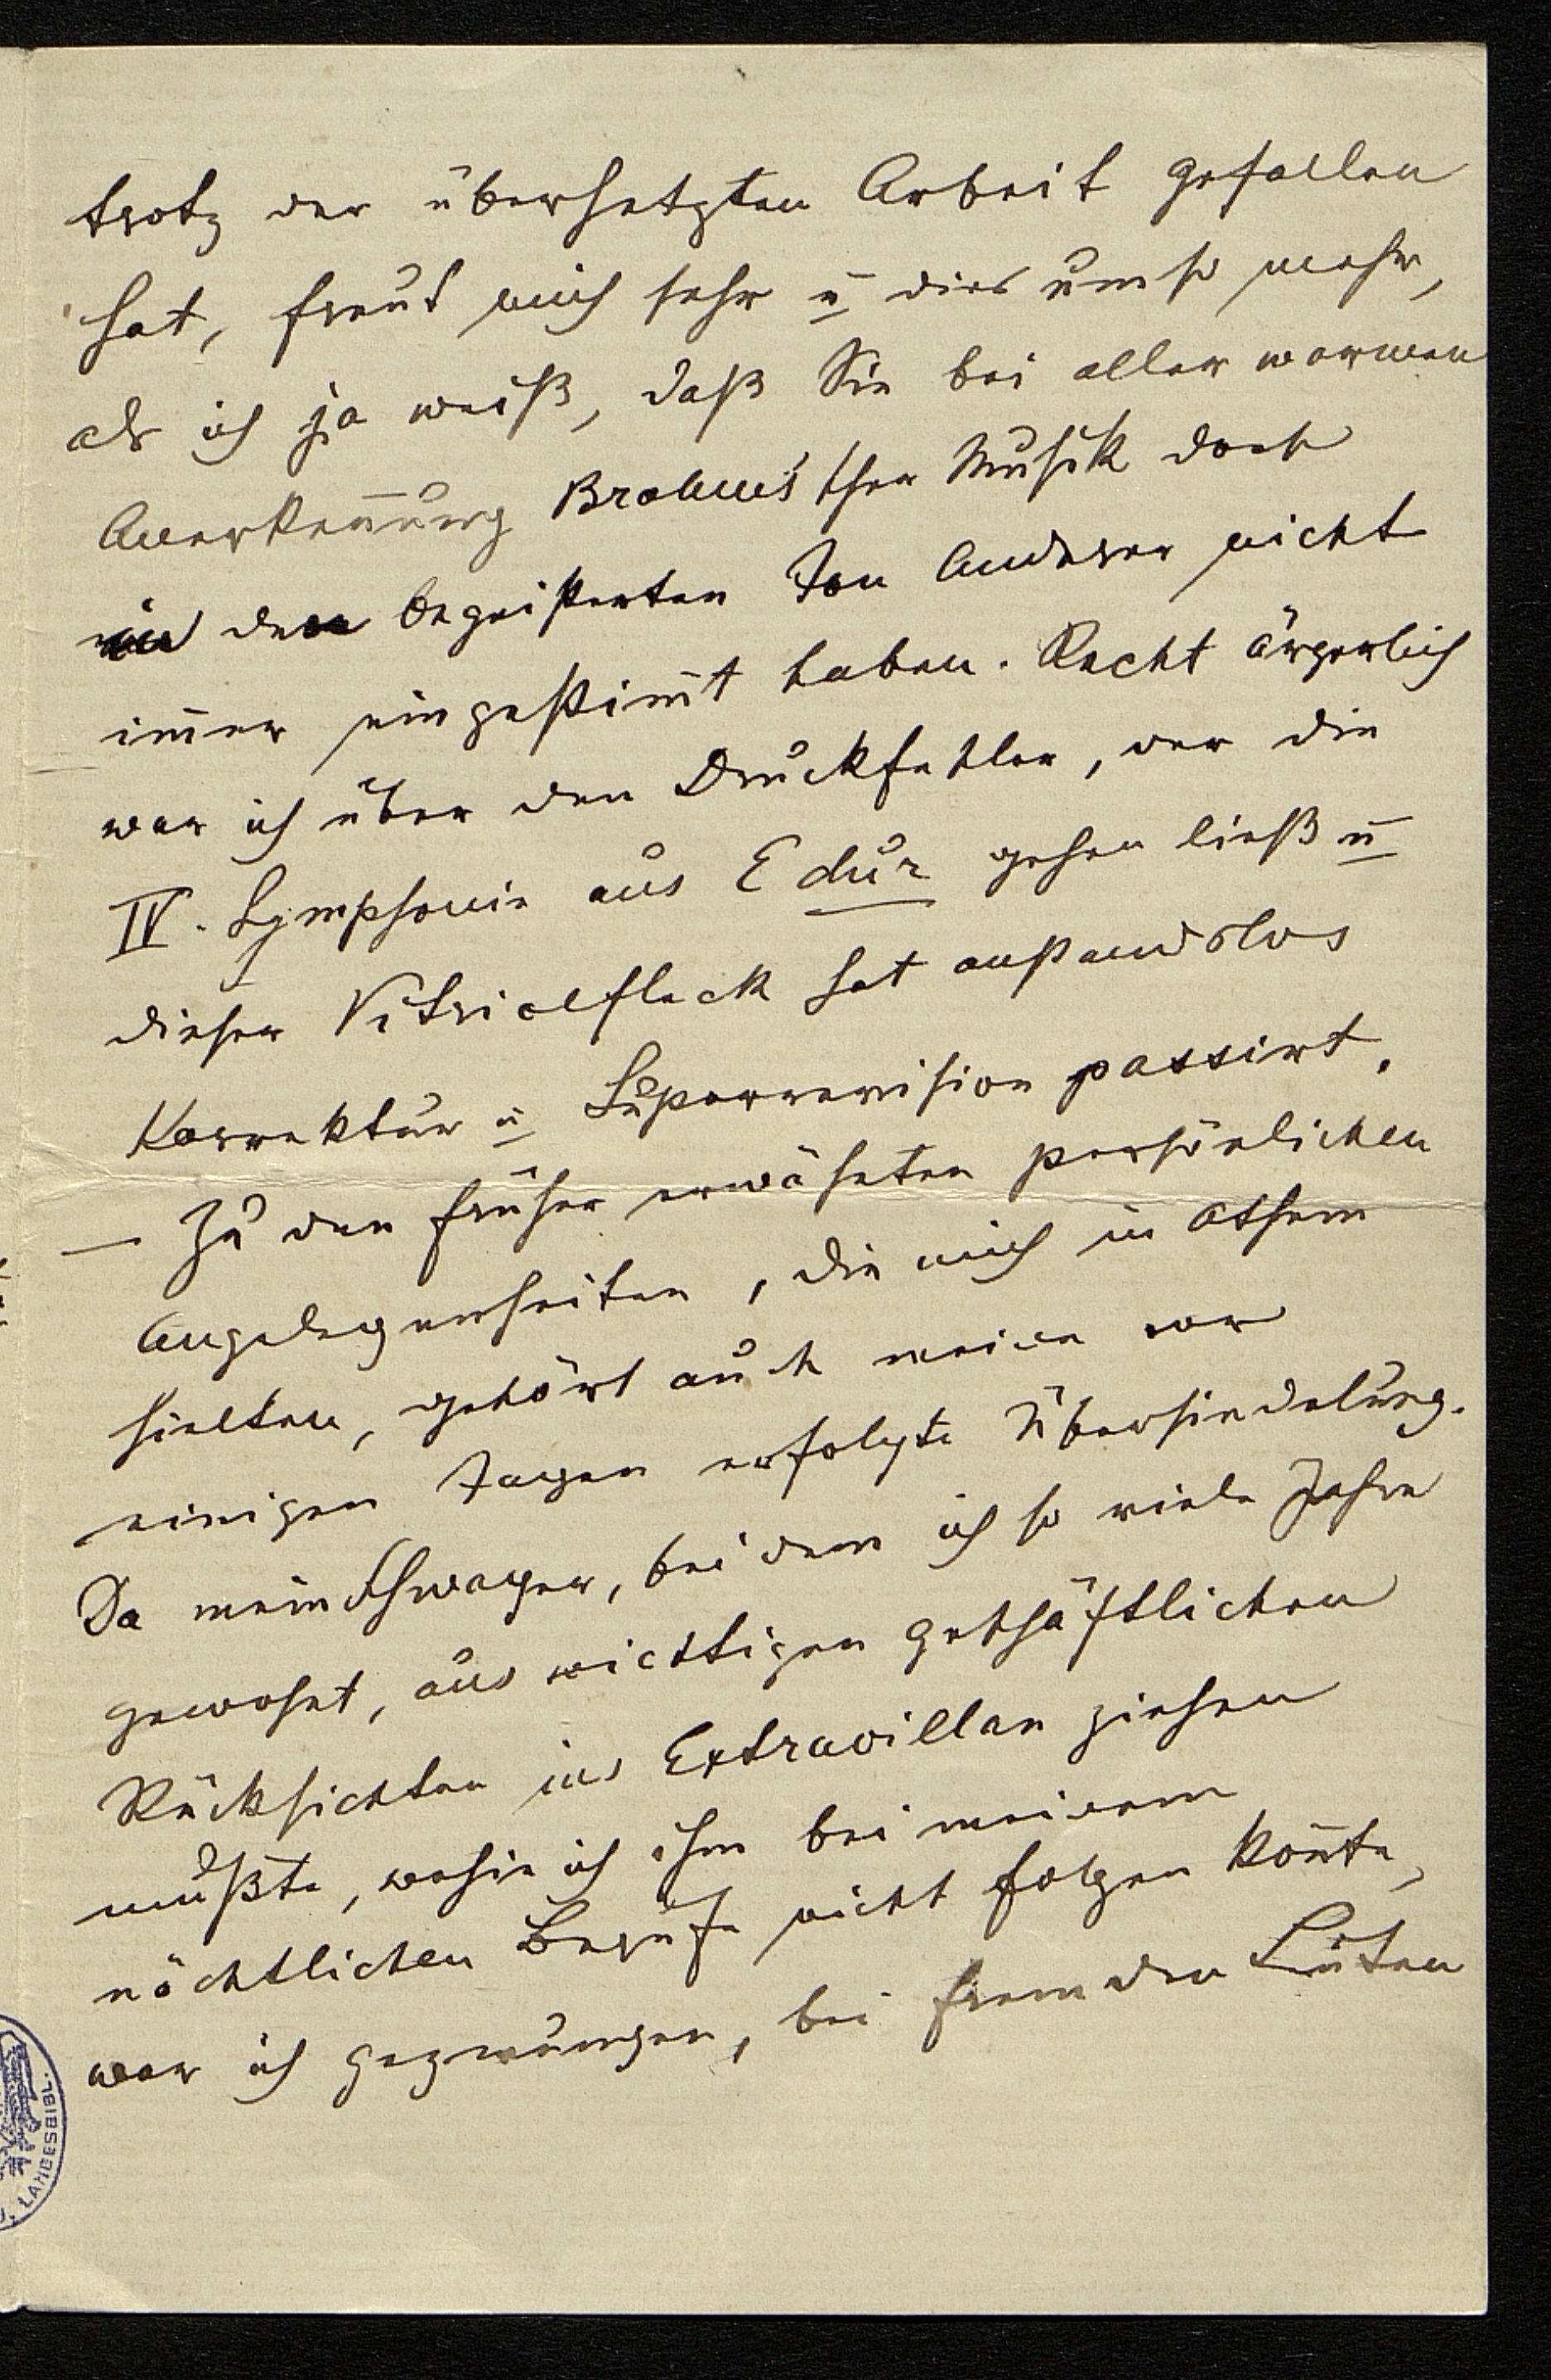 trotz der übersetzten Arbeit gefallen
hat, freut mich sehr u dies umso mehr,
als ich ja weiß, daß Sie bei aller warmen
Anerkenn̄ung Brahms'scher Musik doch
in den begeisterten Ton Anderer nicht
im̄er eingestim̄t haben. Recht ärgerlich
war ich über den Druckfehler, der die
IV. Symphonie aus E dur gehen ließ u
dieser Vitriolfleck hat anstandslos
Korrektur u Superrevision passirt.
— Zu den früher erwähnten persönlichen
Angelegenheiten, die mich in Athem
hielten, gehört auch meine vor
einigen Tagen erfolgte Übersiedelung.
Da mein Schwager, bei dem ich so viele Jahre
gewohnt, aus wichtigen geschäftlichen
Rücksichten ins Extravillan ziehen
mußte, wohin ich ihm bei meinem
nächtlichen Berufe nicht folgen kon̄te,
war ich gezwungen, bei fremden Leuten
LANDESBIBL.